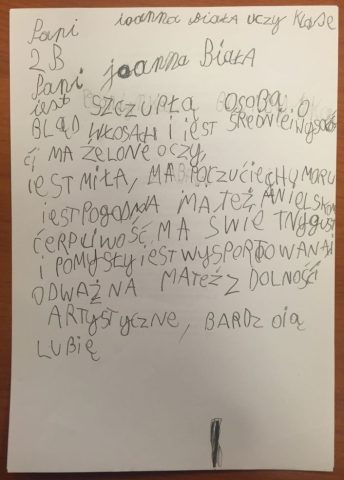 Pani joanna Biała uczy klasę
2B
Pani joanna Biała
jest SZCZUPŁĄ OSOBĄ O
BLĄD WŁOSAH I jEST ŚREDNIEj WysokoŚ
ći MA ŻELONE OCZY,
jEST MIŁA, MA POCZUĆIE HUMORU
jEST POGODNA MA TEŻ ANIELSKOM
ĆERPLIWOŚĆ MA ŚWIETNY GUST
I POMYSŁY jEST WYSPORTOWANA I
ODWAŻNA MA TEŻ ZDOLNOŚĆI
ARTYSTYCZNE, BARDZO JĄ
LUBIĘ